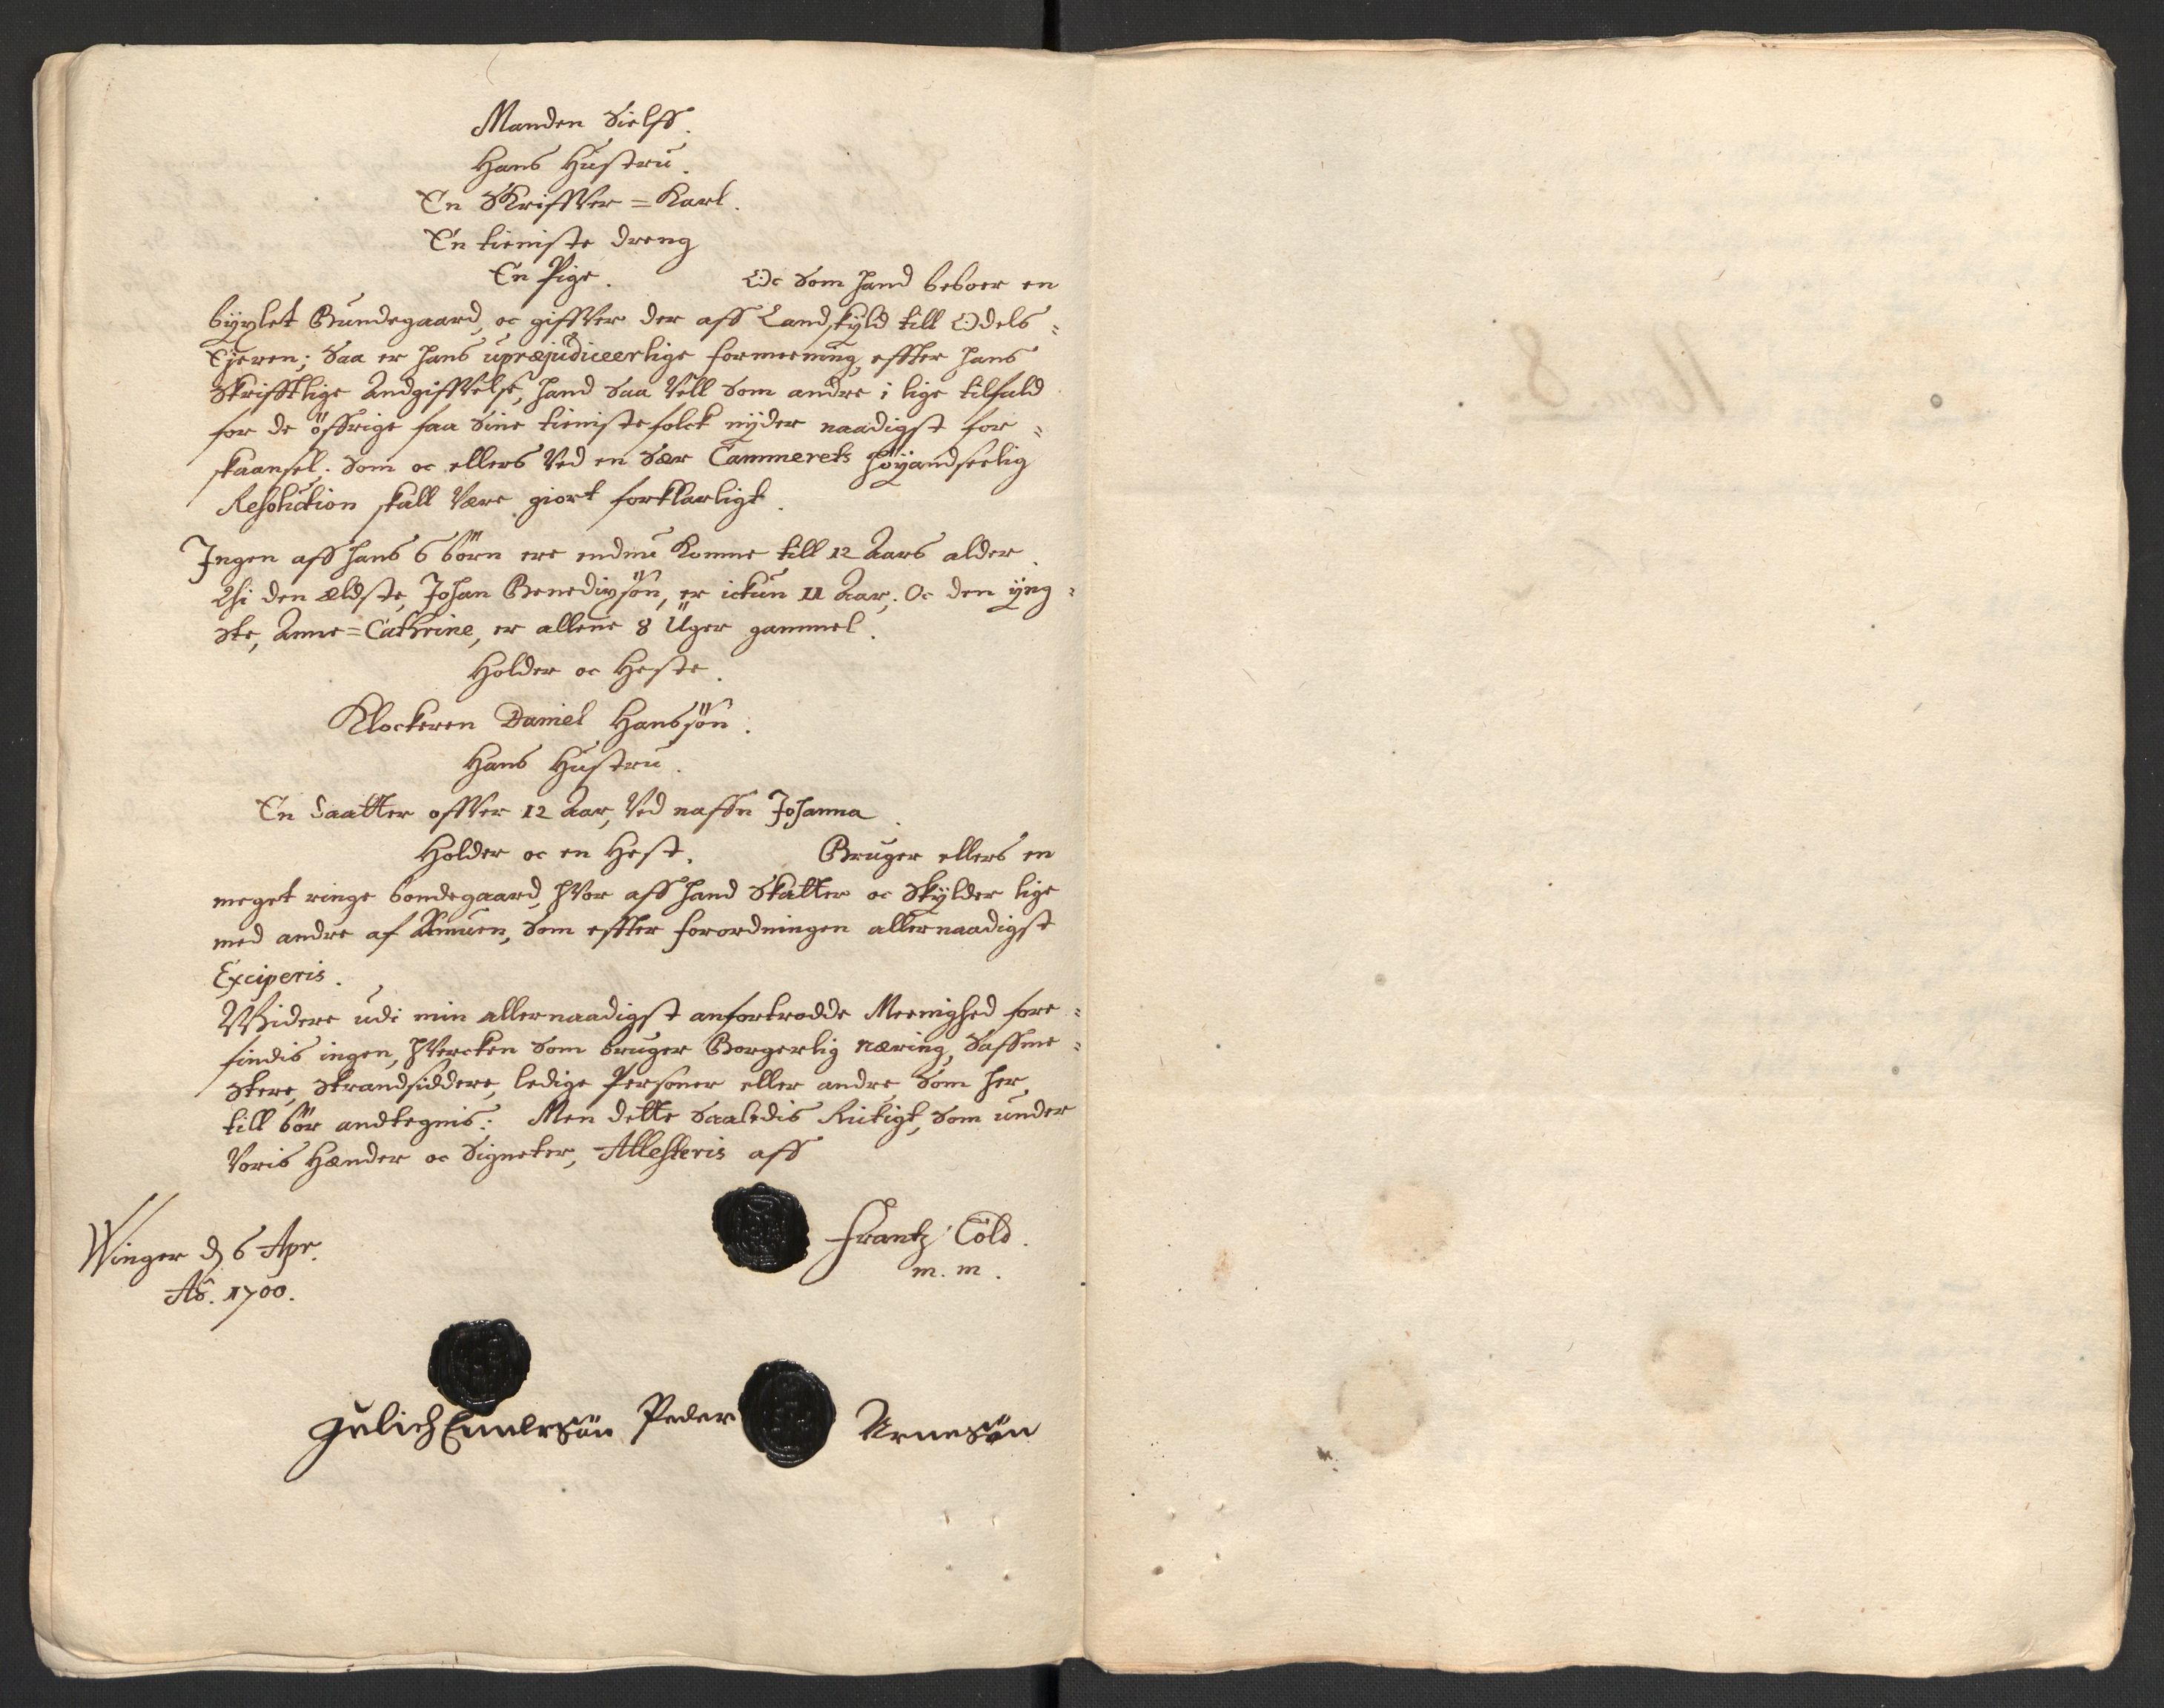 Manden Sielff.
Hans Hustru.
En Skriffver=Karl.
En tieniste dreng
En Pige. Oc Som hand beboer en
byxlet Bundegaard, oc giffver der aff Landskyld till Odels=
Ejeren; Saa er hans upræjudiceerlige formeening, effter hans
Skrifftlige Andgiffvelse, hand Saa vell Som andre i lige tilfald
for de öffrige faa Sine tienistefolck nyder naadigst for=
skaansel. Som oc ellers Ved en Sær Cammerets höyandseelig
Resolution skall Være giort forklarligt.
Ingen aff hans 6 börn ere endnu Komne till 12 Aars alder.
Thi den ældste, Johan Benedixsön, er ickun 11 Aar; Oc den yng=
ste, Anne=Cathrine, er allene 8 Uger gammel.
Holder oc Heste.
Klockeren Daniel Hanssön.
Hans Hustru.
En Daatter offver 12 Aar, Ved naffn Johanna.
Holder oc en Hest. Bruger ellers en
meget ringe bondegaard, hvor aff hand Skatter oc Skylder lige
med andre af Almuen, Som effter forordningen allernaadigst
Exciperis.
Widere udi min allernaadigst anfortrodde Meenighed fore=
findis ingen, hvercken Som bruger Borgerlig næring, Saffme=
stere, Strandsiddere, ledige Personer eller andre Som her
till bör andtegnis: Men dette Saaledis Rictigt, Som under
Voris Hænder oc Signeter, Attesteris aff
Winger d. 6 Apr.
Aõ. 1700.
Frantz Cold.
m. m.
Gulich Emmersön Peder Arnesön
No. 8.